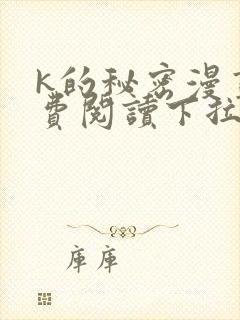 K的秘密漫
費閱讀下拉
庫庫